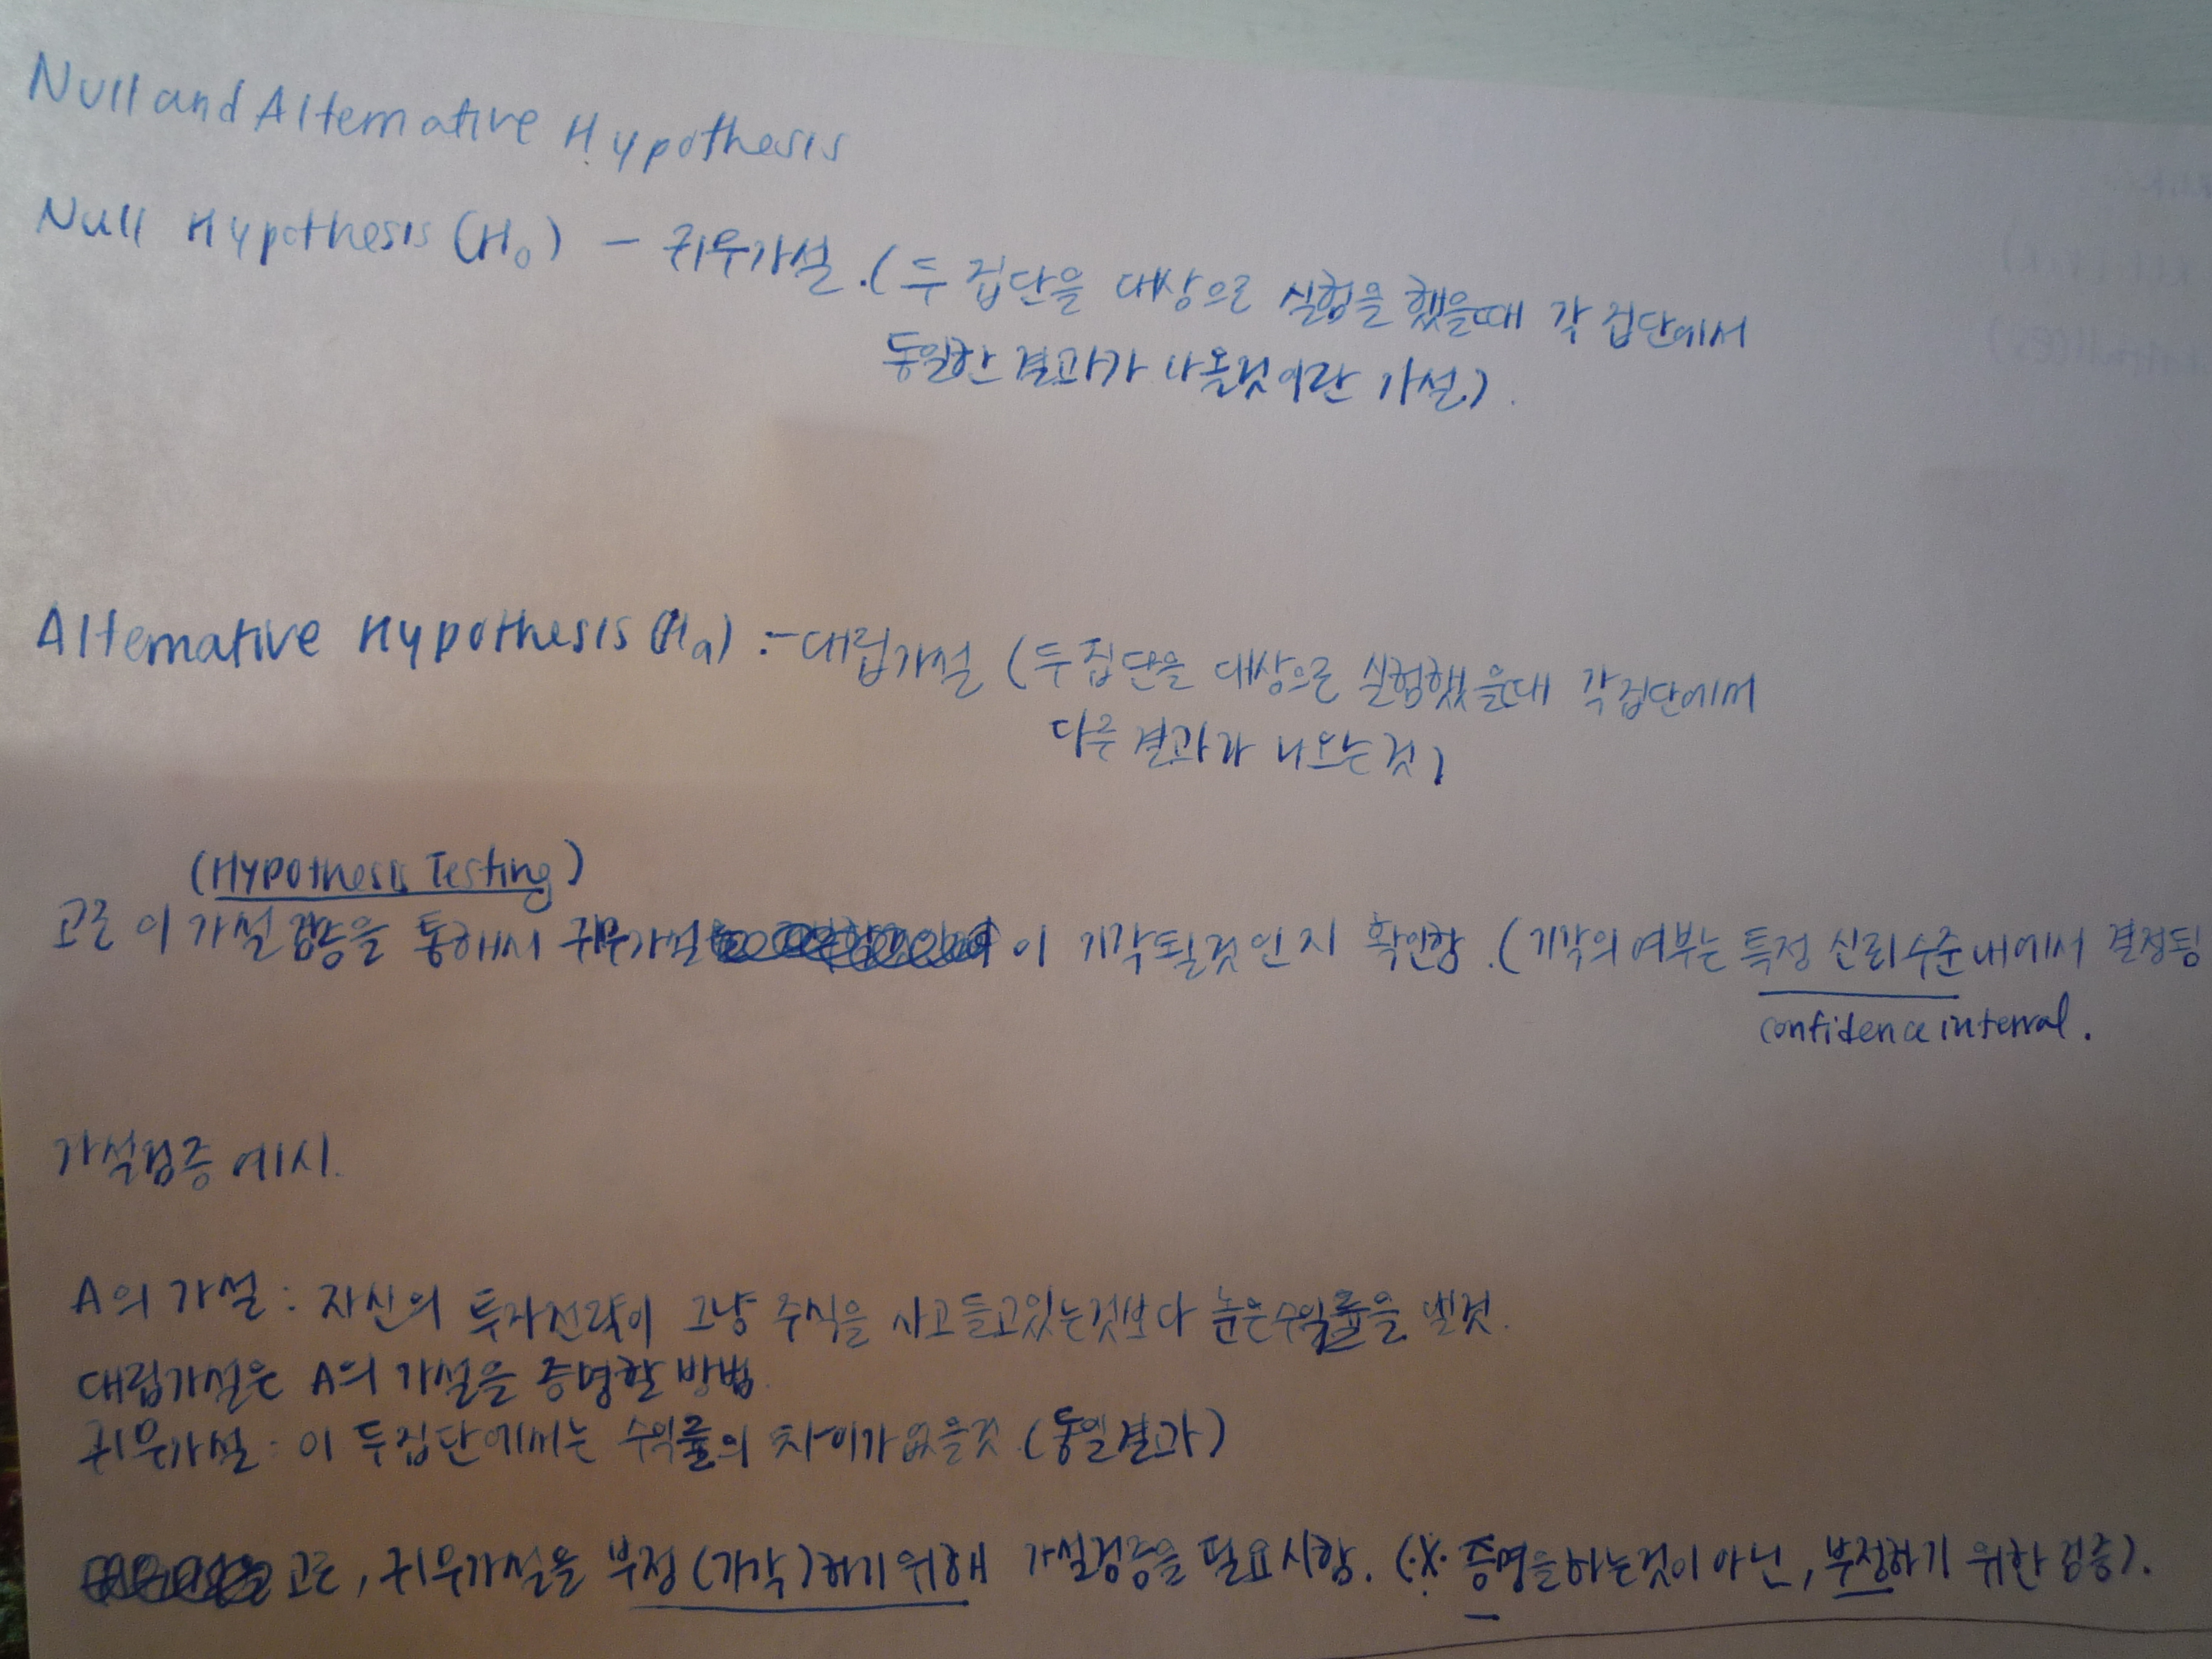 Null and Alternative Hypothesis
Null Hypothesis (H₀) - 귀무가설. (두 집단을 대상으로 실험을 했을때 각 집단에서
동일한 결과가 나올것이란 가설).
Alternative Hypothesis (Ha) :- 대립가설 (두집단을 대상으로 실험했을때 각집단에서
다른 결과가 나오는것)
(Hypothesis Testing)
고로 이 가설검증을 통해서 귀무가설이 기각될것인지 확인함. (기각의 여부는 특정 신뢰수준내에서 결정됨
confidence interval.
가설검증 예시.
A의 가설 : 자신의 투자전략이 그냥 주식을 사고들고있는것보다 높은수익률을 낼것.
대립가설은 A의 가설을 증명할 방법.
귀무가설 : 이 두집단에서는 수익률의 차이가없을것 (동일결과)
고로, 귀무가설을 부정 (가각)하기위해 가설검증을 필요시함. (※ 증명을하는것이아닌, 부정하기 위한 검증).